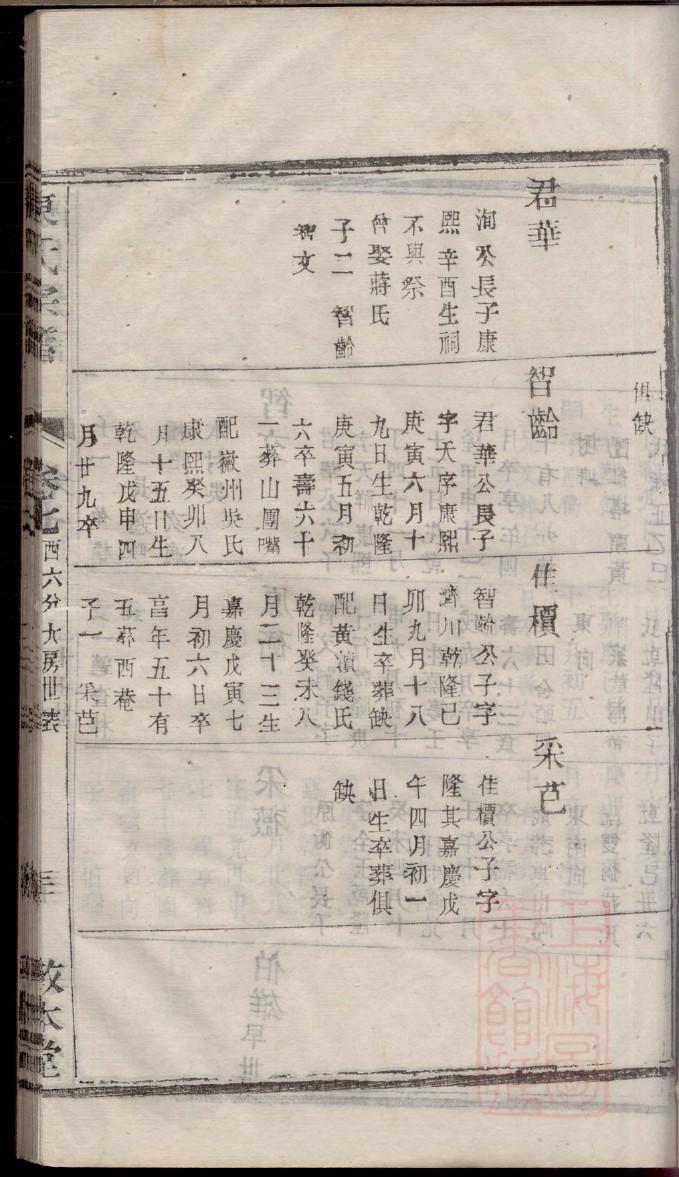 俱缺
君華
洵公長子康
熙辛酉生祠
不與祭
曾娶蔣氏
子二 智齡
智文
智齡
君華公長子
字天字康熙
庚寅六月十
九日生乾隆
庚寅五月初
六卒壽六十
一葬山圍嘴
配徽州吳氏
康熙癸卯八
月十五日生
乾隆戊申四
月廿九卒
佳檟
智齡公子字
濟川乾隆己
卯九月十八
日生卒葬缺
配黃瀆錢氏
乾隆癸未八
月二十三生
嘉慶戊寅七
月初六日卒
享年五十有
五葬西菴
子一 采芑
采芑
佳檟公子字
隆其嘉慶戊
午四月初一
日生卒葬俱
缺
氏宗譜
卷七
西六分大房世表
敦本堂
上海圖書館藏